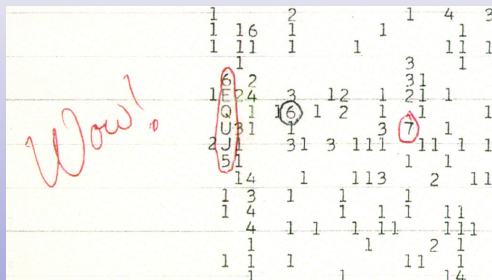 1 2 1 4 3
1 16 1 1 1
1 11 1 1 11 1
1 3 1
6 2 31
1 E 24 3 12 1 21 1
Q 1 16 1 2 1 1 1
U 31 1 3 7 1
2 J 1 31 3 111 11 1 1
5 1 1 1
14 1 113 2 11
1 3 1 1 1
1 4 1 1 1 11
4 1 1 1 11 111
1 1 2 1
1 1 1 11 1
1 1 14
Wow!